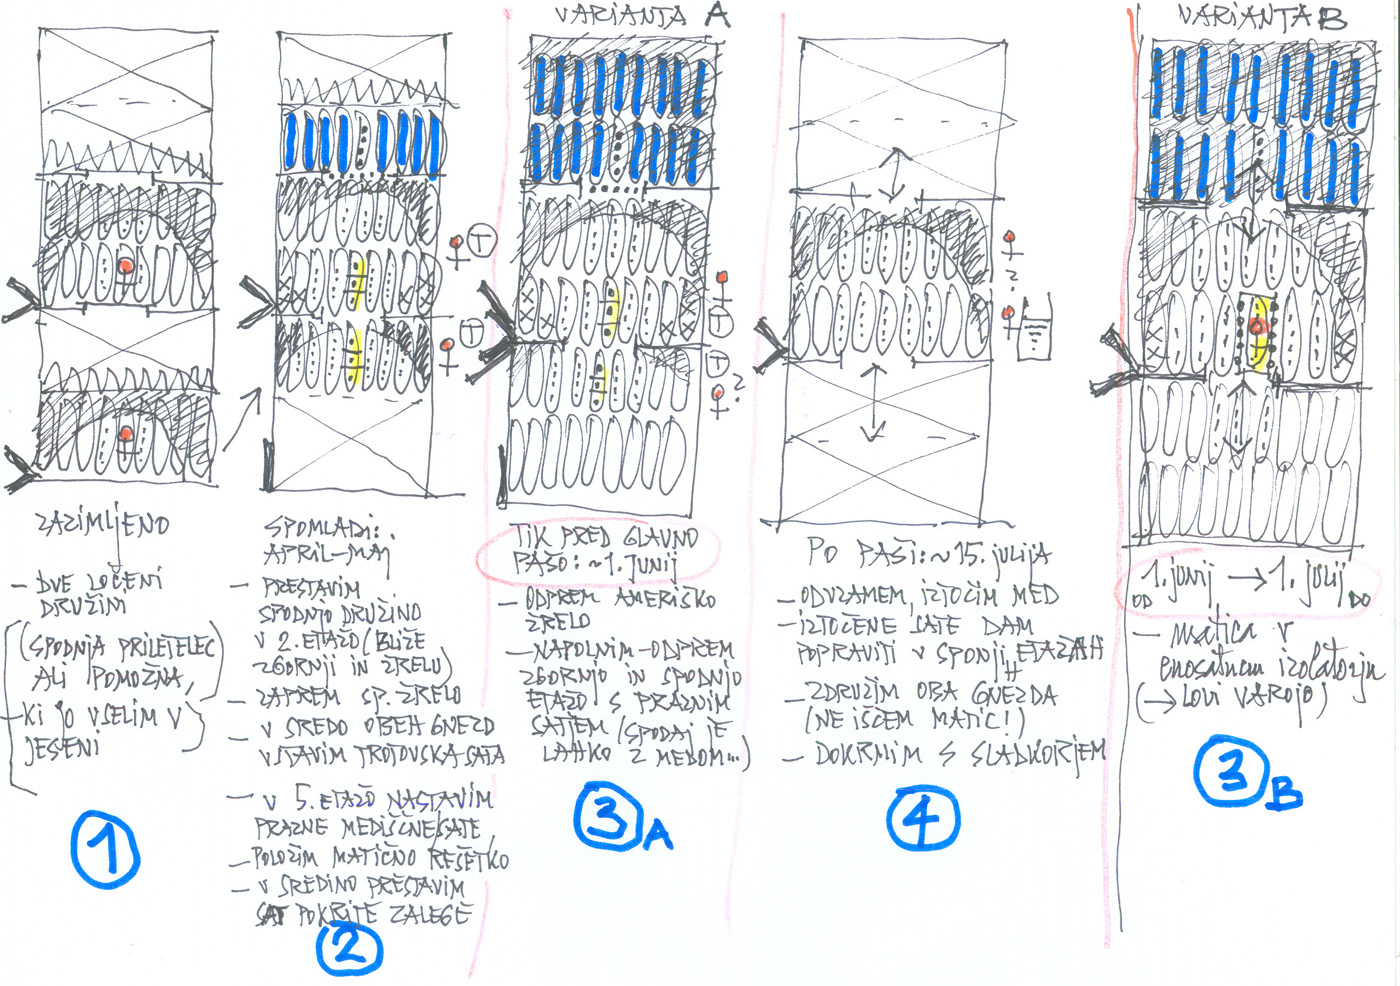 VARIANTA A
VARIANTA B
T
T
T
T
?
?
ZAZIMLJENO
- DVE LOČENI
DRUŽINI
(SPODNJA PRILETELEC
ALI POMOŽNA,
- KI JO VSELIM V
JESENI)
1
SPOMLADI:
APRIL-MAJ
- PRESTAVIM
SPODNJO DRUŽINO
V 2. ETAŽO (BLIŽE
ZGORNJI IN ŽRELU)
- ZAPREM SP. ŽRELO
- V SREDO OBEH GNEZD
VSTAVIM TROTOVSKA SATA
- V 5. ETAŽO NASTAVIM
PRAZNE MEDIŠČNE SATE,
- POLOŽIM MATIČNO REŠETKO
- V SREDINO PRESTAVIM
SAT POKRITE ZALEGE
2
TIK PRED GLAVNO
PAŠO: ~1. JUNIJ
- ODPREM AMERIŠKO
ŽRELO
- NAPOLNIM-ODPREM
ZGORNJO IN SPODNJO
ETAŽO S PRAZNIM
SATJEM (SPODAJ JE
LAHKO Z MEDOM...)
3A
PO PAŠI: ~15. julija
- ODVZAMEM, IZTOČIM MED
- IZTOČENE SATE DAM
POPRAVITI V SPONJIH ETAŽAH
- ZDRUŽIM OBA GNEZDA
(NE IŠČEM MATIC!)
- DOKRMIM S SLADKORJEM
4
OD 1. junij → 1. julij DO
- matica v
enosatnem izolatorju
(→ LOVI VAROJO)
3B